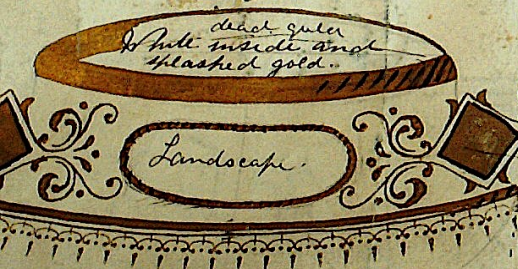 dead
White inside and
splashed gold.
Landscape.